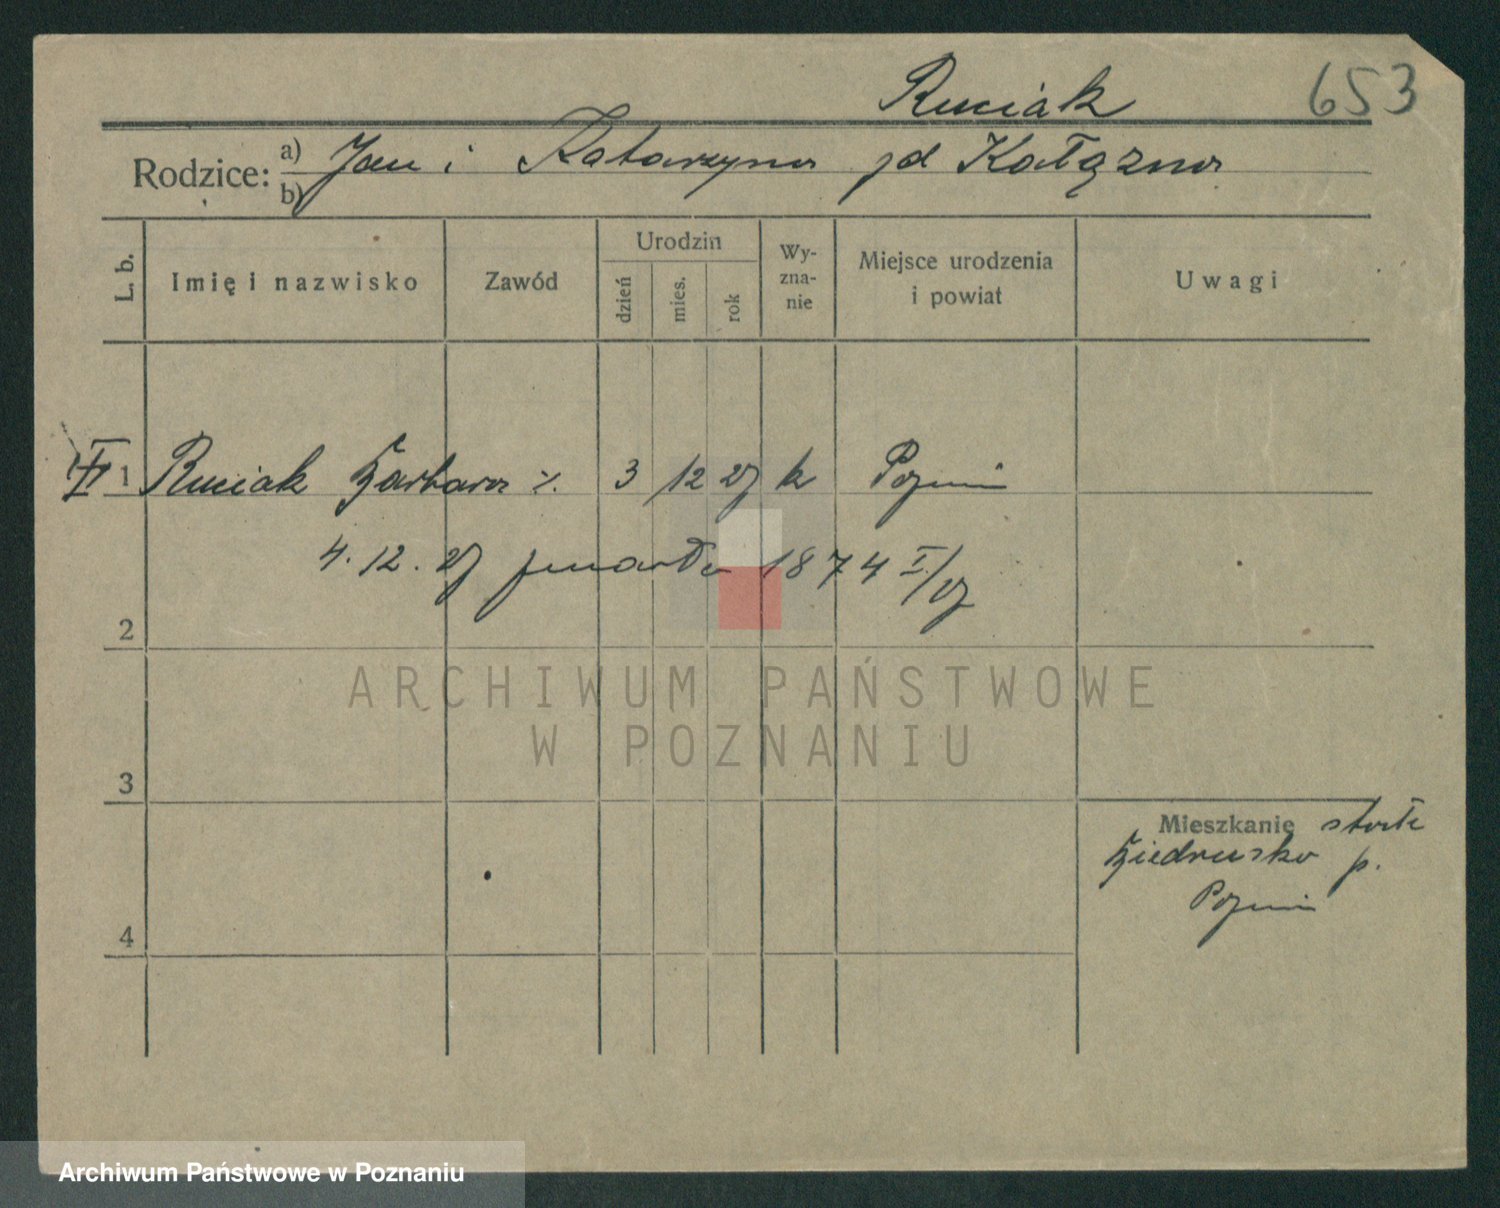 Ruciak 653
Rodzice: a) Jan i Katarzyna zd Kałązna
b)
L. b. Imię i nazwisko Zawód Urodzin dzień mies. rok Wy-zna-nie Miejsce urodzenia i powiat Uwagi
1 Ruciak Barbara 3 12 27 k Poznań
4. 12. 27 zmarła 1874 I/27
2
ARCHIWUM PAŃSTWOWE
W POZNANIU
3
Mieszkanie stałe
Biedrusko p.
Poznań
4
Archiwum Państwowe w Poznaniu